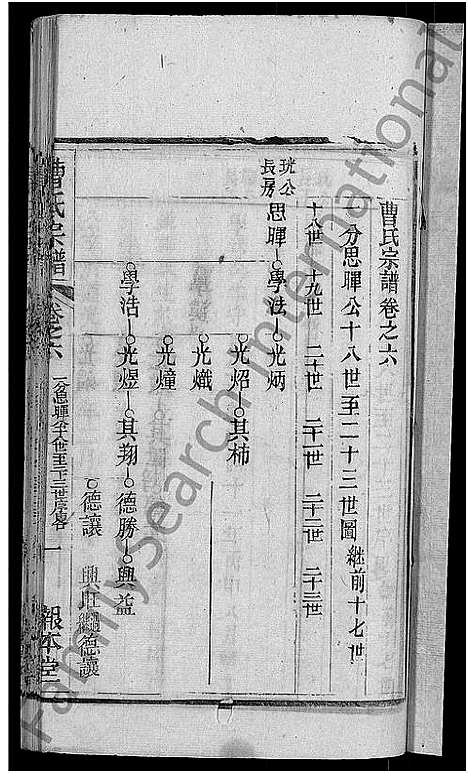 曹氏宗譜卷之六
一分思暉公十八世至二十三世圖 継前十七世
十八世 十九世 二十世 二十一世 二十二世 二十三世
珖公長房
思暉 學法 光炳
光炤 其柿
光熾
光煄
學浩 光煜 其翔 德勝 興益
德讓 興旺 德讓
曹氏宗譜 卷之六 一 報本堂
FamilySearch International